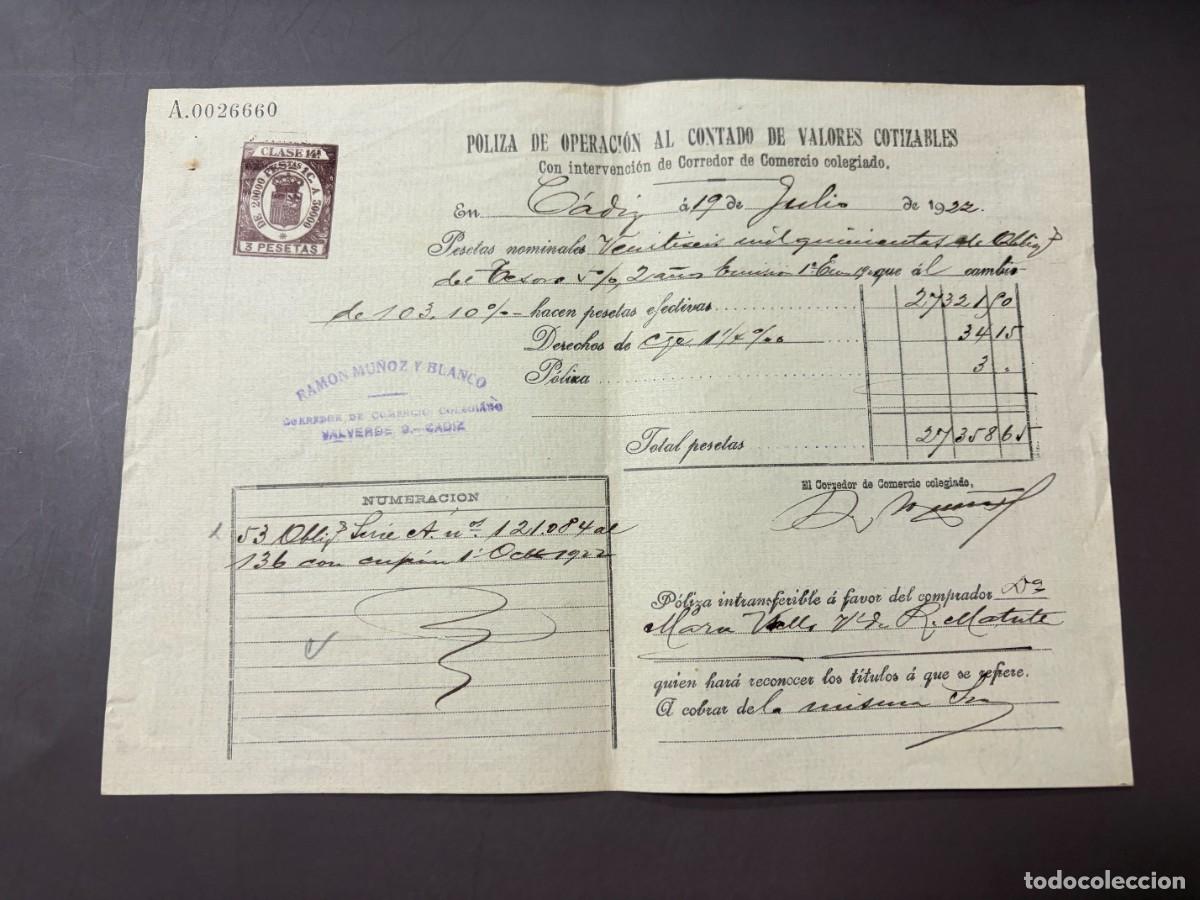 A.0026660
CLASE 14ª
DE 20000 PESETAS 1C. A 30000
3 PESETAS
POLIZA DE OPERACIÓN AL CONTADO DE VALORES COTIZABLES
Con intervención de Corredor de Comercio colegiado.
En Cádiz á 19 de Julio de 1922.
Pesetas nominales Veintiseis mil quinientas de Obligs
del Tesoro 5%, 2 años Emisión 1º En 19 que ál cambio
de 103,10% hacen pesetas efectivas 27321 50
Derechos de 1 1/4 %00 34 15
Póliza 3 "
Total pesetas 27358 65
RAMON MUÑOZ Y BLANCO
CORREDOR DE COMERCIO COLEGIADO
VALVERDE 9.- CADIZ
El Corredor de Comercio colegiado,
R. Muñoz
NUMERACION
53 Obligs Serie A. nos 121.084 al
136 con cupón 1º Octe 1922
Póliza intransferible á favor del comprador Dª
María Valls Vda de R. Matute
quien hará reconocer los títulos á que se refiere.
A cobrar de la misma Sra
todocoleccion